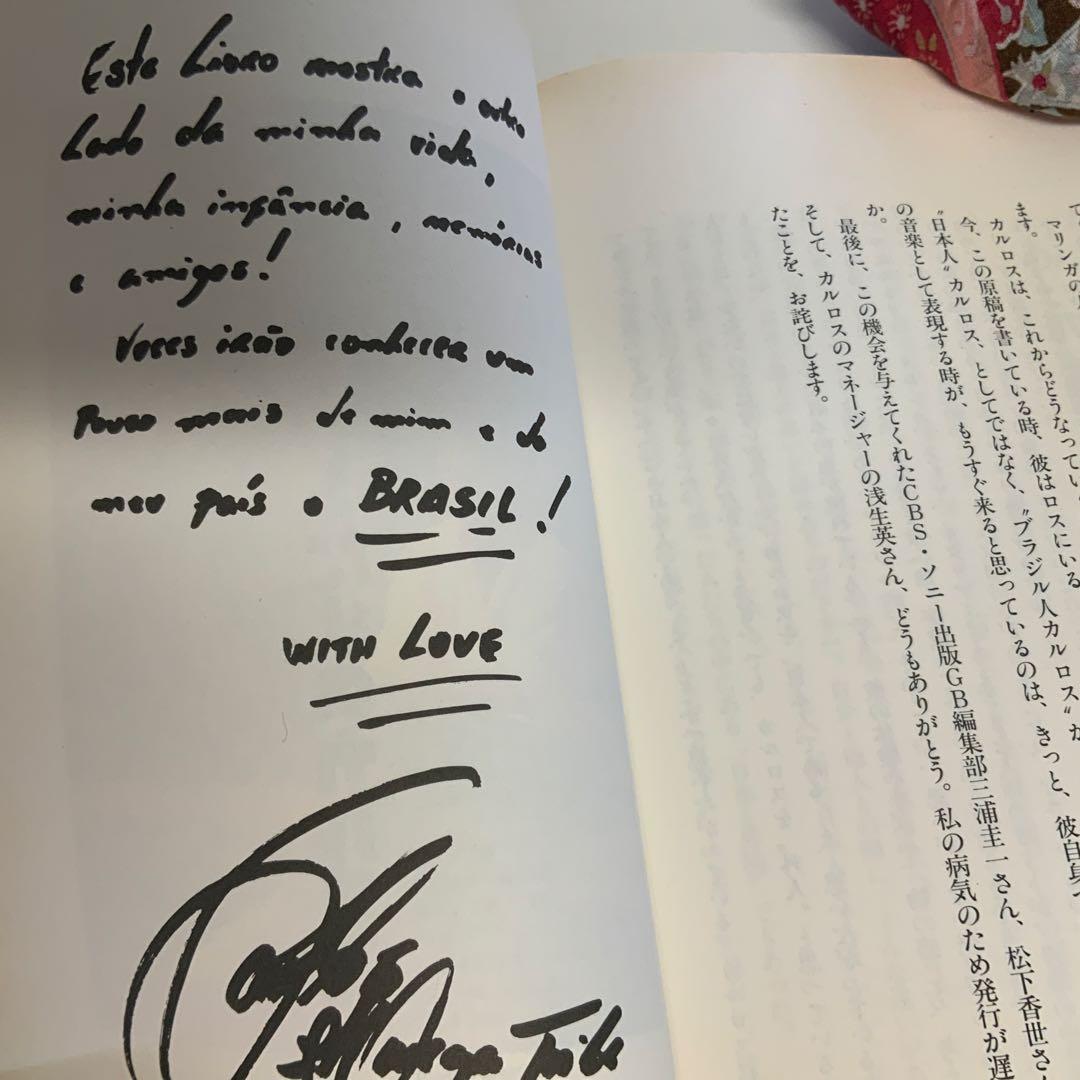 Este Livro mostra o outro
Lado da minha vida,
minha infância, memórias
e amigos!
Voces irão conhecer um
Pouco mais de mim e do
meu país o BRASIL!
WITH LOVE
Carlos
Toshiki
マリンガの
ます。
カルロスは、これからどうなってい
今、この原稿を書いている時、彼はロスにいる
〝日本人〟カルロス、としてではなく、〝ブラジル人カルロス〟が
の音楽として表現する時が、もうすぐ来ると思っているのは、きっと、彼自身
か。
最後に、この機会を与えてくれたCBS・ソニー出版GB編集部三浦圭一さん、松下香世さ
そして、カルロスのマネージャーの浅生英さん、どうもありがとう。私の病気のため発行が遅
たことを、お詫びします。